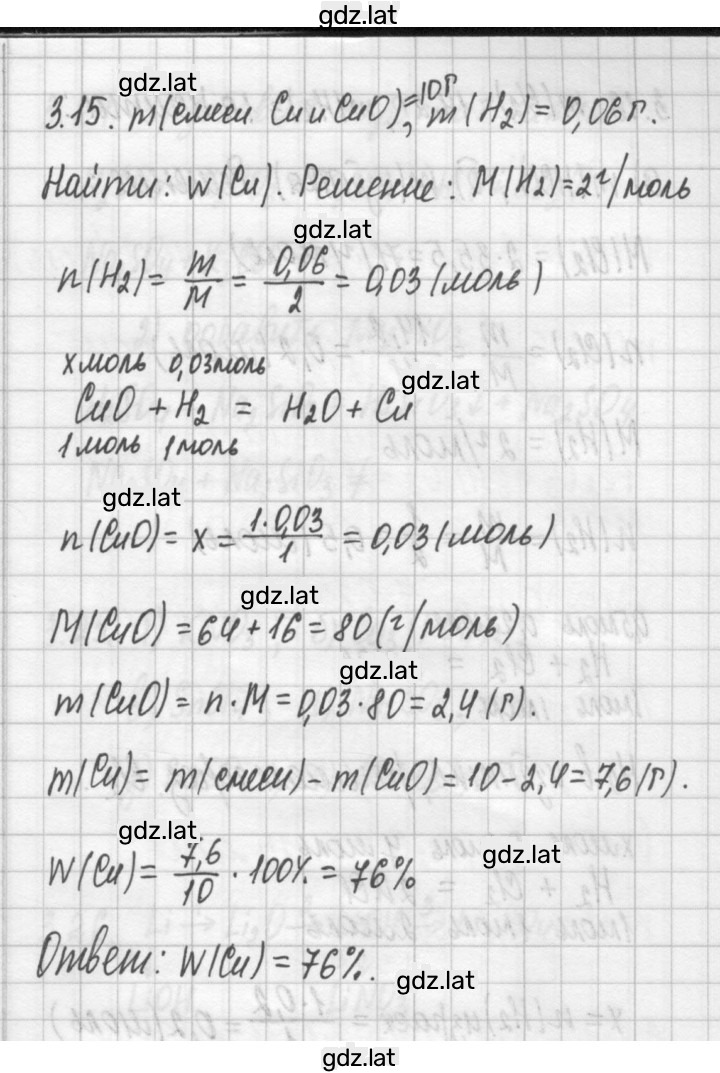 gdz.lat
gdz.lat
3.15. m(смеси Cu и CuO)=10г, m(H₂)=0,06г.
Найти: w(Cu). Решение: M(H₂)=2 г/моль
gdz.lat
n(H₂)= m/M = 0,06/2 = 0,03 (моль)
x моль 0,03 моль
gdz.lat
CuO + H₂ = H₂O + Cu
1 моль 1 моль
gdz.lat
n(CuO)= x = 1·0,03/1 = 0,03 (моль)
gdz.lat
M(CuO) = 64+16 = 80 (г/моль)
gdz.lat
m(CuO)= n·M = 0,03·80 = 2,4 (г).
m(Cu)= m(смеси) - m(CuO) = 10 - 2,4 = 7,6 (г).
gdz.lat
gdz.lat
W(Cu)= 7,6/10 · 100% = 76%
Ответ: W(Cu) = 76%.
gdz.lat
gdz.lat